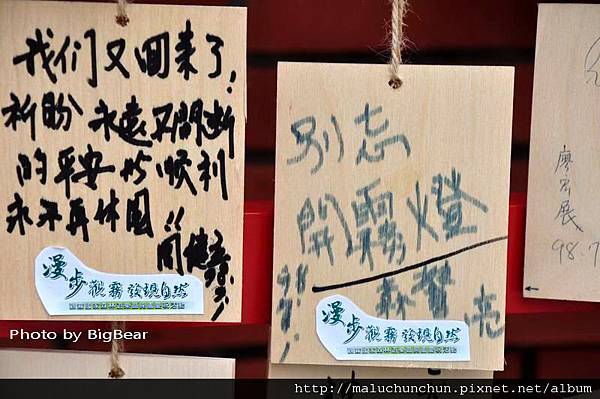 我们又回来了!
祈盼 永遠不間断
的平安與順利
永不再休園!!
漫步觀霧 發現自然
Photo by BigBear
別忘
開霧燈
98
亮
漫步觀霧 發現自然
廖
展
98.7
http://maluchunchun.pixnet.net/album